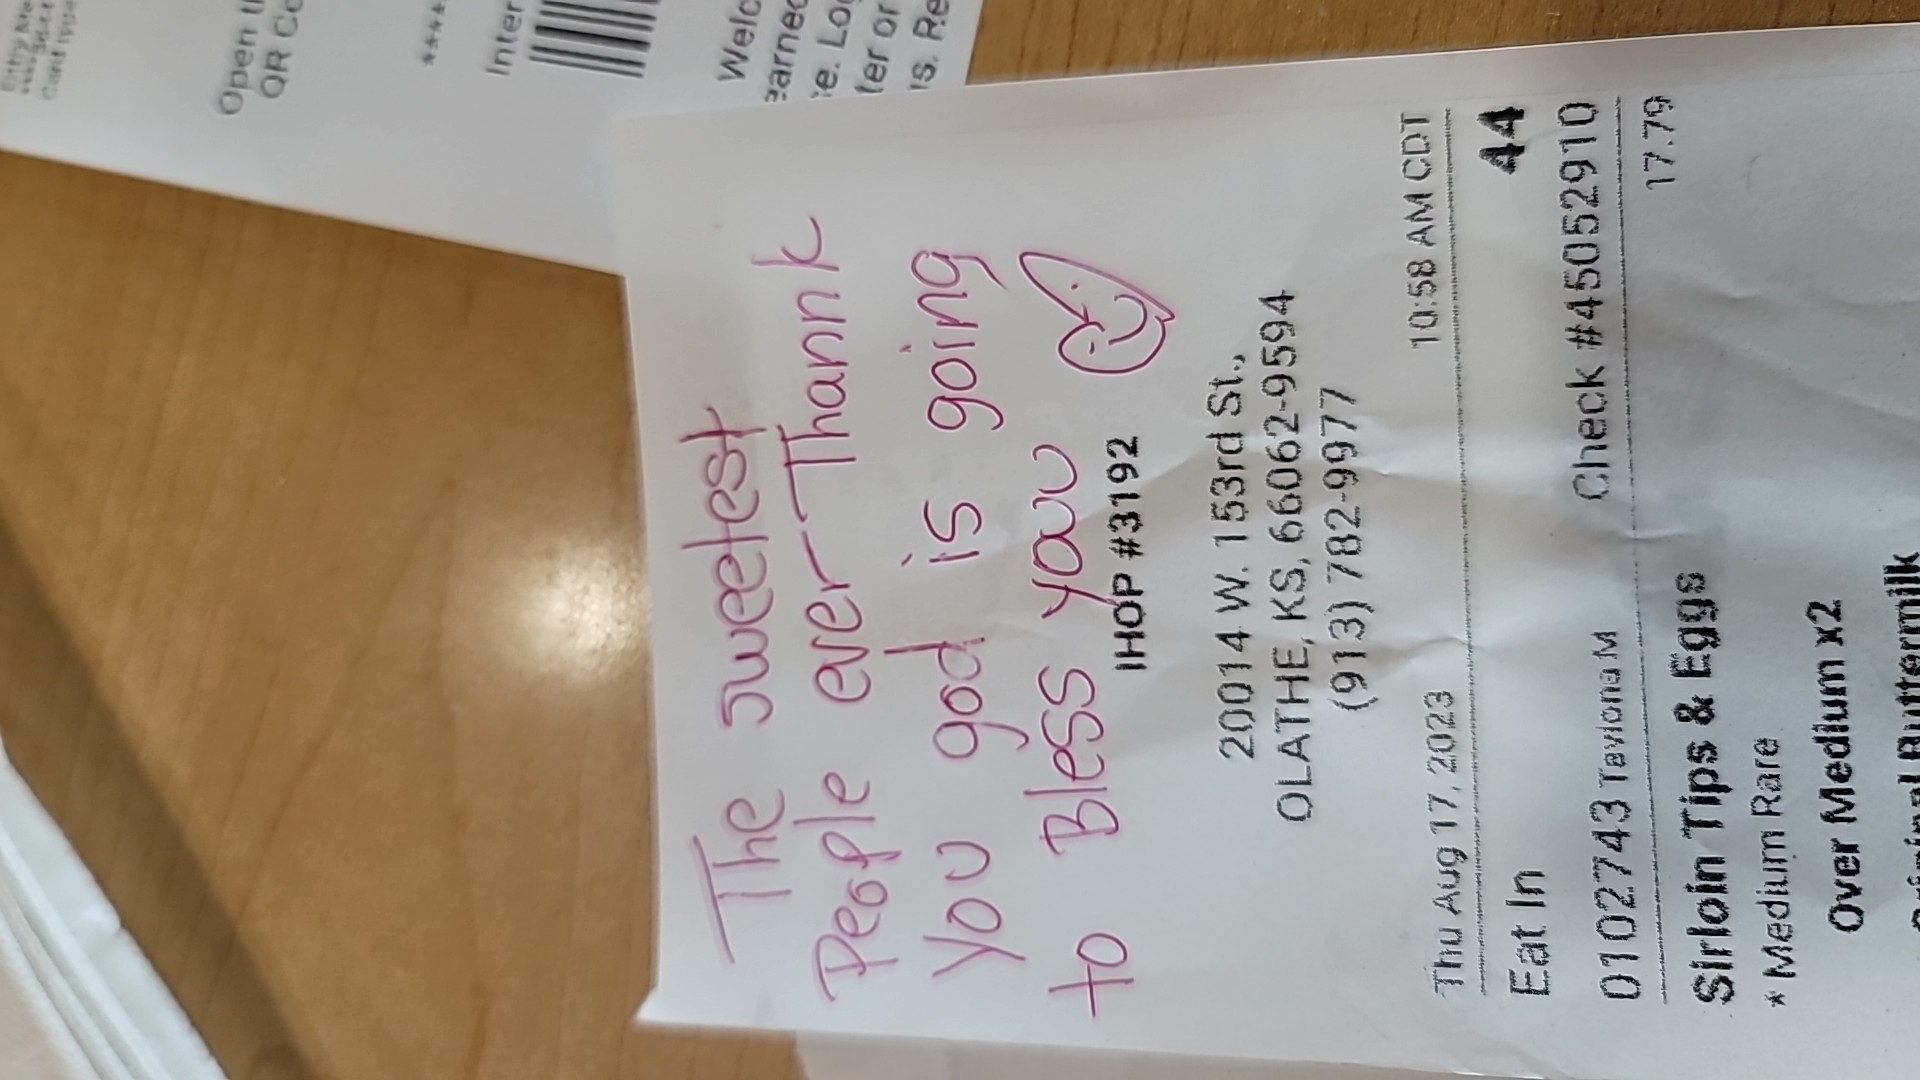 The sweetest
People ever Thank
you god is going
to Bless you
IHOP #3192
20014 W. 153rd St.,
OLATHE, KS, 66062-9594
(913) 782-9977
Thu Aug 17, 2023 10:58 AM CDT
Eat In 44
01102743 Taviona M Check #45052910
Sirloin Tips & Eggs 17.79
* Medium Rare
Over Medium x2
Buttermilk
Open
QR
****
Inter
Welc
earned
e. Lo
ter or
s. Re